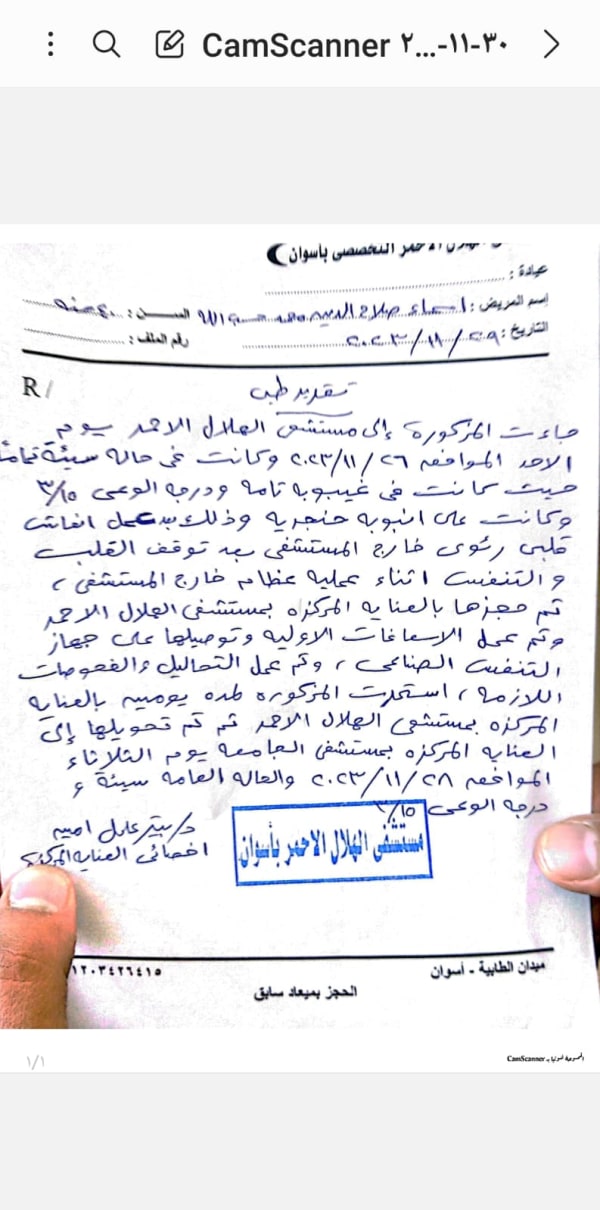 CamScanner ٢...-١١-٣٠
الهلال الاحمر التخصصى بأسوان
عيادة :
اسم المريض : اسماء صلاح الدين محمد حسب الله السن : ٤٠ سنه
التاريخ : ٢٠٢٣/١١/٢٩ رقم الملف :
R/
تقرير طبى
جاءت المزكورة إلى مستشفى الهلال الاحمر يوم
الاحد الموافق ٢٠٢٣/١١/٢٦ وكانت فى حاله سيئة تمامًا
حيث كانت فى غيبوبه تامة ودرجه الوعى ٣/١٥
وكانت على انبوبه حنجريه وذلك بعد عمل انعاش
قلبى رئوى خارج المستشفى بعد توقف القلب
والتنفس اثناء عمليه عظام خارج المستشفى ،
تم حجزها بالعنايه المركزه بمستشفى الهلال الاحمر
وتم عمل الاسعافات الاوليه وتوصيلها على جهاز
التنفس الصناعى ، وتم عمل التحاليل والفحوصات
اللازمه ، استمرت المزكوره لمده يوميه بالعنايه
المركزه بمستشفى الهلال الاحمر ثم تم تحويلها إلى
العنايه المركزه بمستشفى الجامعه يوم الثلاثاء
الموافق ٢٠٢٣/١١/٢٨ والحاله العامه سيئة و
درجه الوعى ٣/١٥
د/ بيتر عادل امين
اخصائى العنايه المركزة
مستشفى الهلال الاحمر بأسوان
ميدان الطابية - أسوان ١٢٠٣٤٢٦٤١٥
الحجز بميعاد سابق
١/١ الممسوحة ضوئيا بـ CamScanner